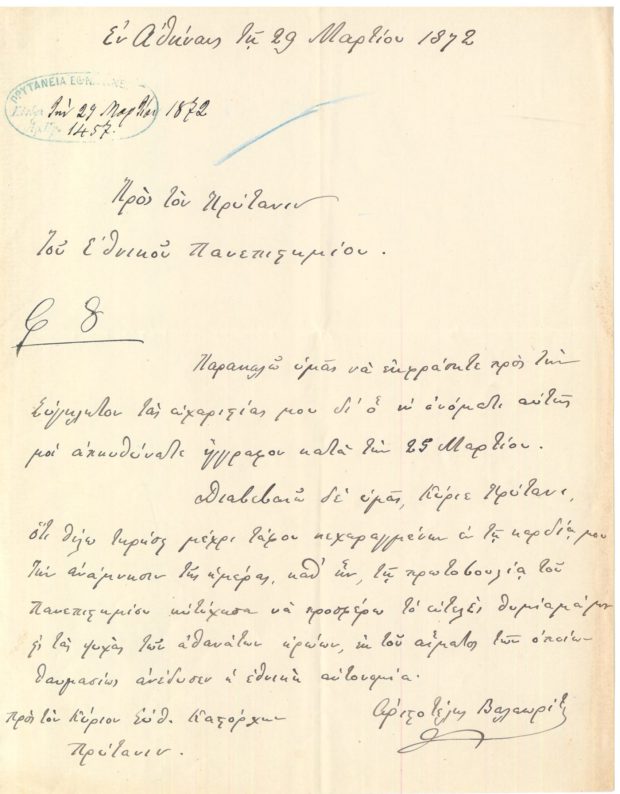 Ἐν Ἀθήναις τῇ 29 Μαρτίου 1872
ΠΡΥΤΑΝΕΙΑ
τὴν 29 Μαρτίου 1872
1457.
Πρὸς τὸν Πρύτανιν
Τοῦ Ἐθνικοῦ Πανεπιστημίου.
Παρακαλῶ ὑμᾶς νὰ ἐκφράσητε πρὸς τὴν
Σύγκλητον τὰς εὐχαριστίας μου δι' ὃ ἐν ὀνόματι αὐτῆς
μοὶ ἀπευθύνατε ἔγγραφον κατὰ τὴν 25 Μαρτίου.
Διαβεβαιῶ δὲ ὑμᾶς, Κύριε Πρύτανι,
ὅτι θέλω τηρήσῃ μέχρι τάφου κεχαραγμένην ἐν τῇ καρδίᾳ μου
τὴν ἀνάμνησιν τῆς ἡμέρας, καθ' ἣν, τῇ πρωτοβουλίᾳ τοῦ
Πανεπιστημίου ηὐτύχησα νὰ προσφέρω τὸ εὐτελὲς θυμίαμά μου
εἰς τὰς ψυχὰς τῶν ἀθανάτων ἡρώων, ἐκ τοῦ αἵματος τῶν ὁποίων
θαυμασίως ἀνέδυσεν ἡ ἐθνικὴ αὐτονομία.
Ἀριστοτέλης Βαλαωρίτης
πρὸς τὸν Κύριον Εὐθ. Καστόρχην
Πρύτανιν.